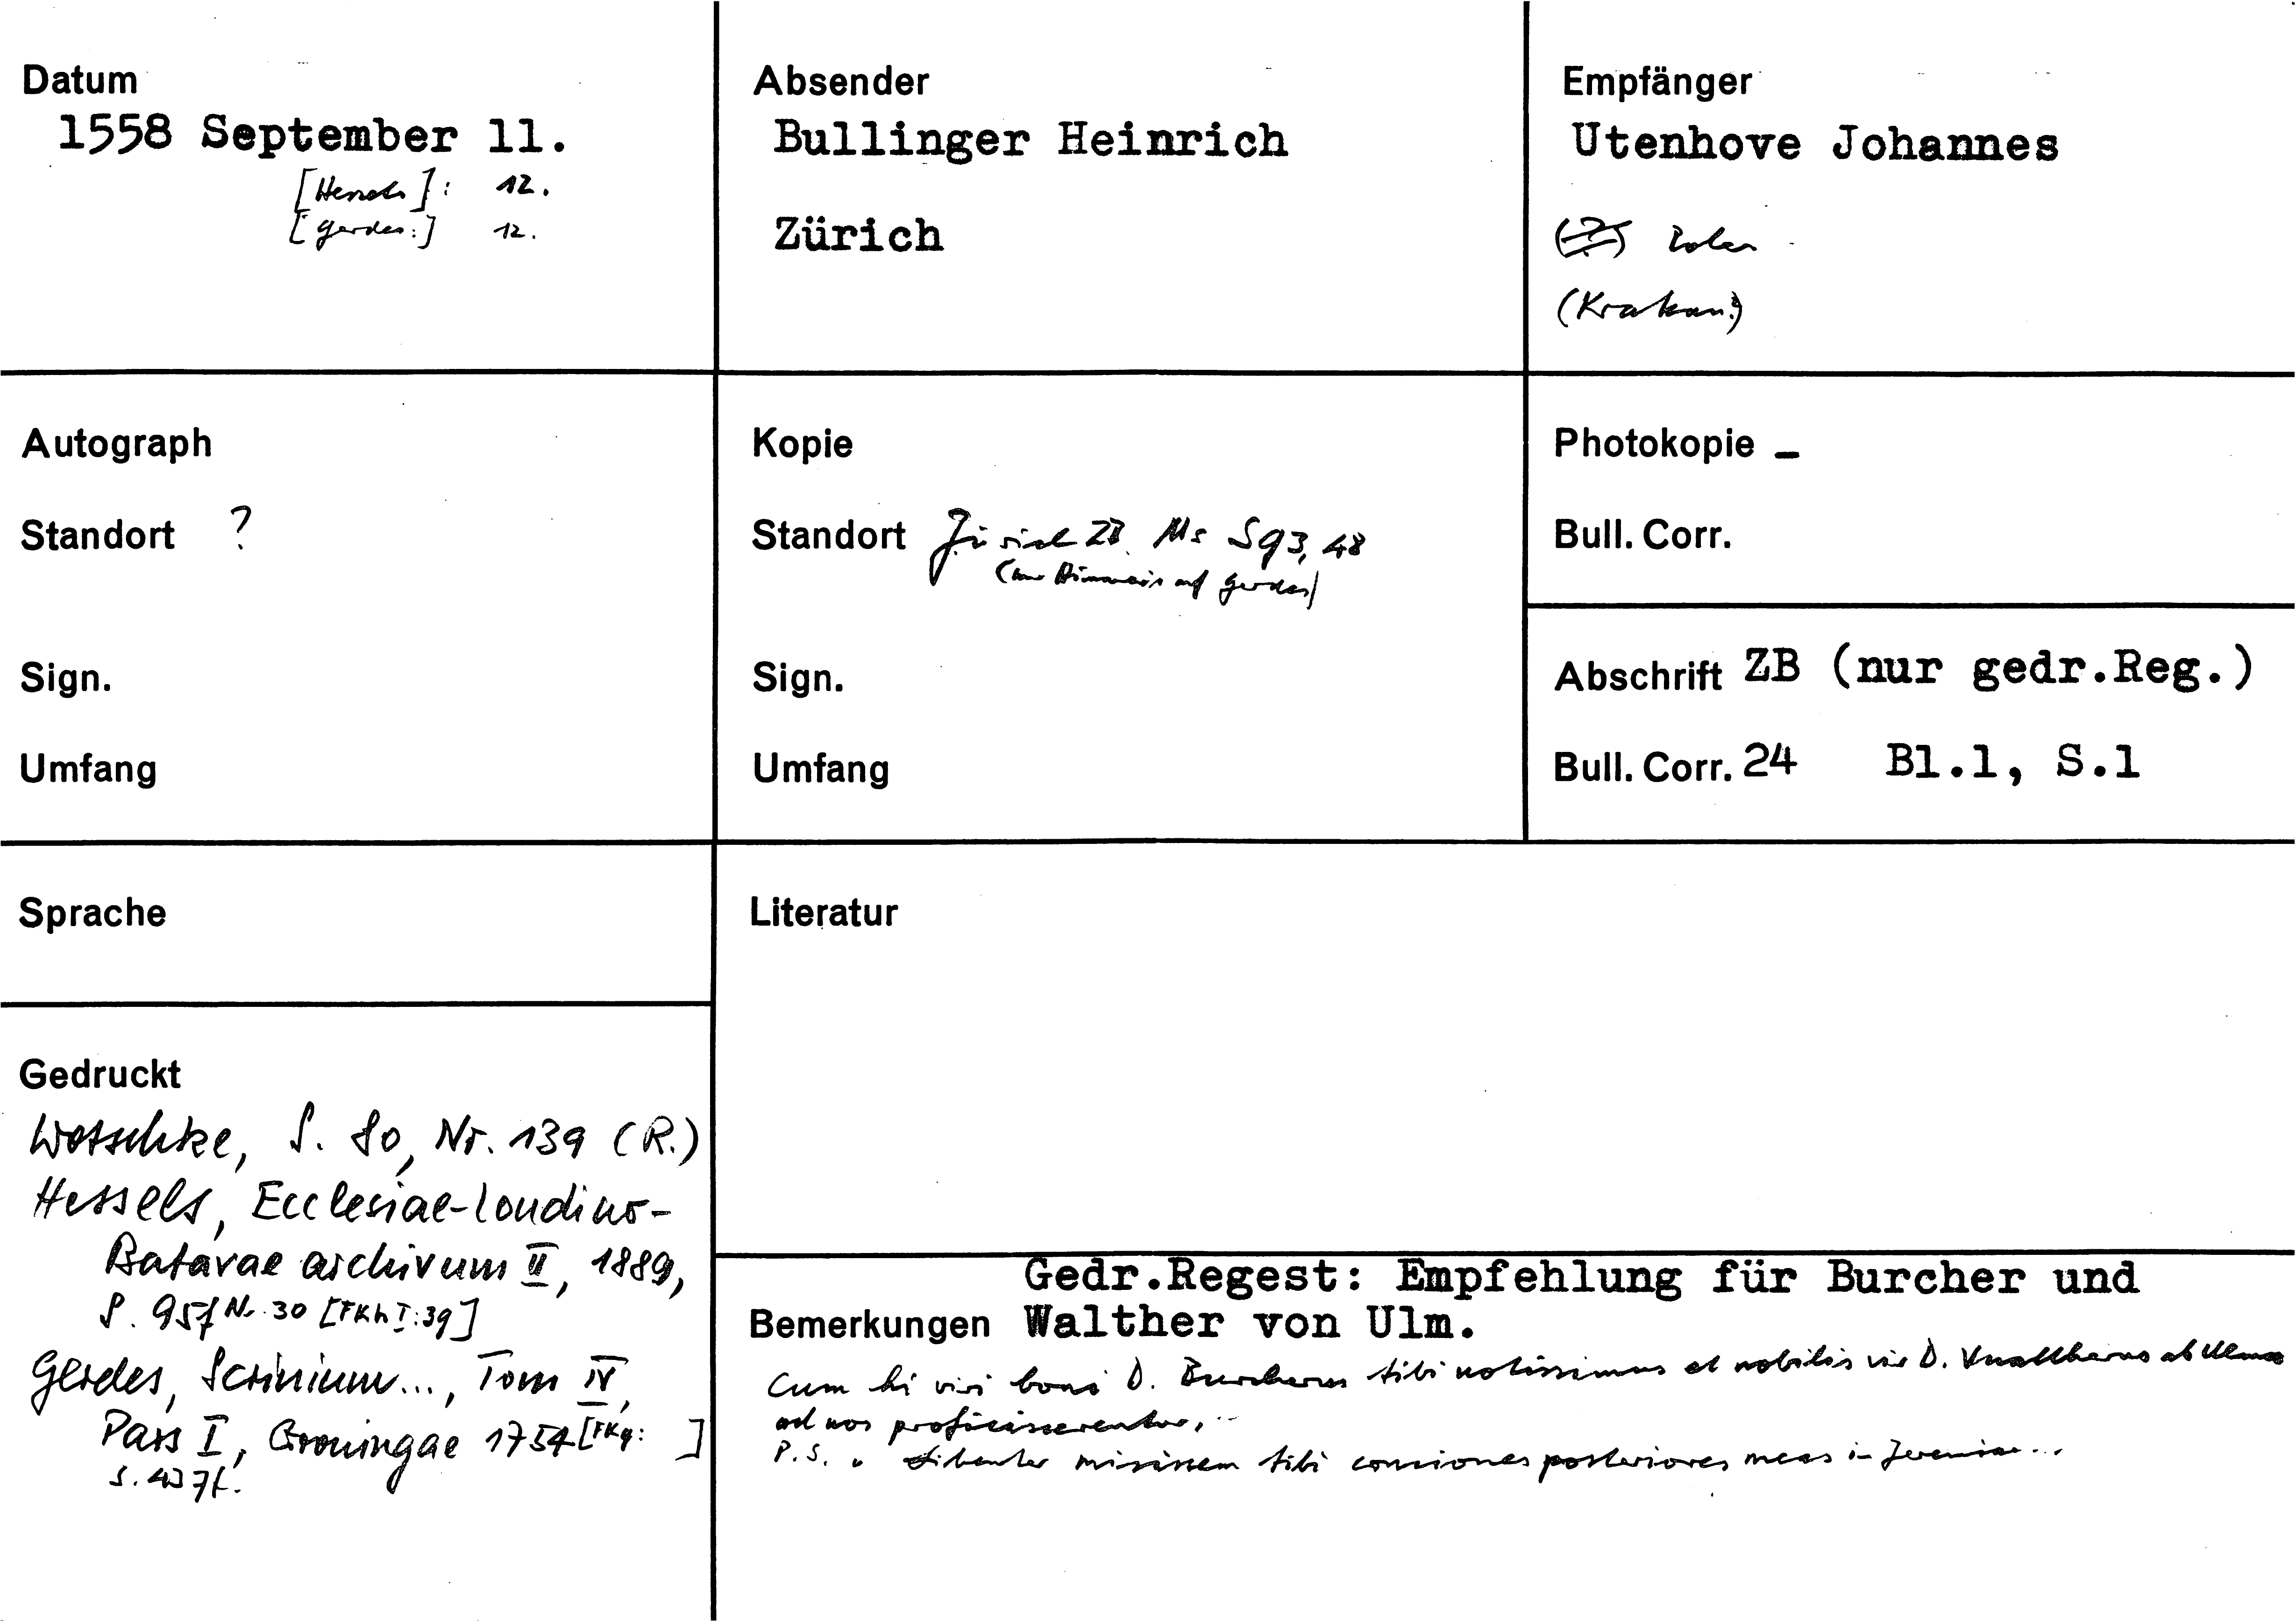 Datum
1558 September 11.
[Hessels]: 12.
[Gerdes:] 12.
Absender
Bullinger Heinrich
Zürich
Empfänger
Utenhove Johannes
(?) Polen
(Krakau?)
Autograph
Standort ?
Sign.
Umfang
Kopie
Standort Zürich ZB. Ms S 93, 48
(nur Hinweis auf Gerdes)
Sign.
Umfang
Photokopie -
Bull. Corr.
Abschrift ZB (nur gedr.Reg.)
Bull. Corr. 24 Bl.1, S.1
Sprache
Literatur
Gedruckt
Wotschke, S. 80, Nr. 139 (R.)
Hessels, Ecclesiae-Londino-
Batavae archivum II, 1889,
S. 95f Nr. 30 [FKh I:39]
Gerdes, Scrinium..., Tom IV,
Pars I, Groningae 1754 [FKg: ]
S. 437f.
Gedr.Regest: Empfehlung für Burcher und
Bemerkungen Walther von Ulm.
Cum hi viri boni D. Burcherus tibi notissimus et nobilis vir D. Vualtherus ab Ulma
ad vos proficiscerentur, ..
P.S. Libenter misissem tibi conciones posteriores meas in Jeremiae...